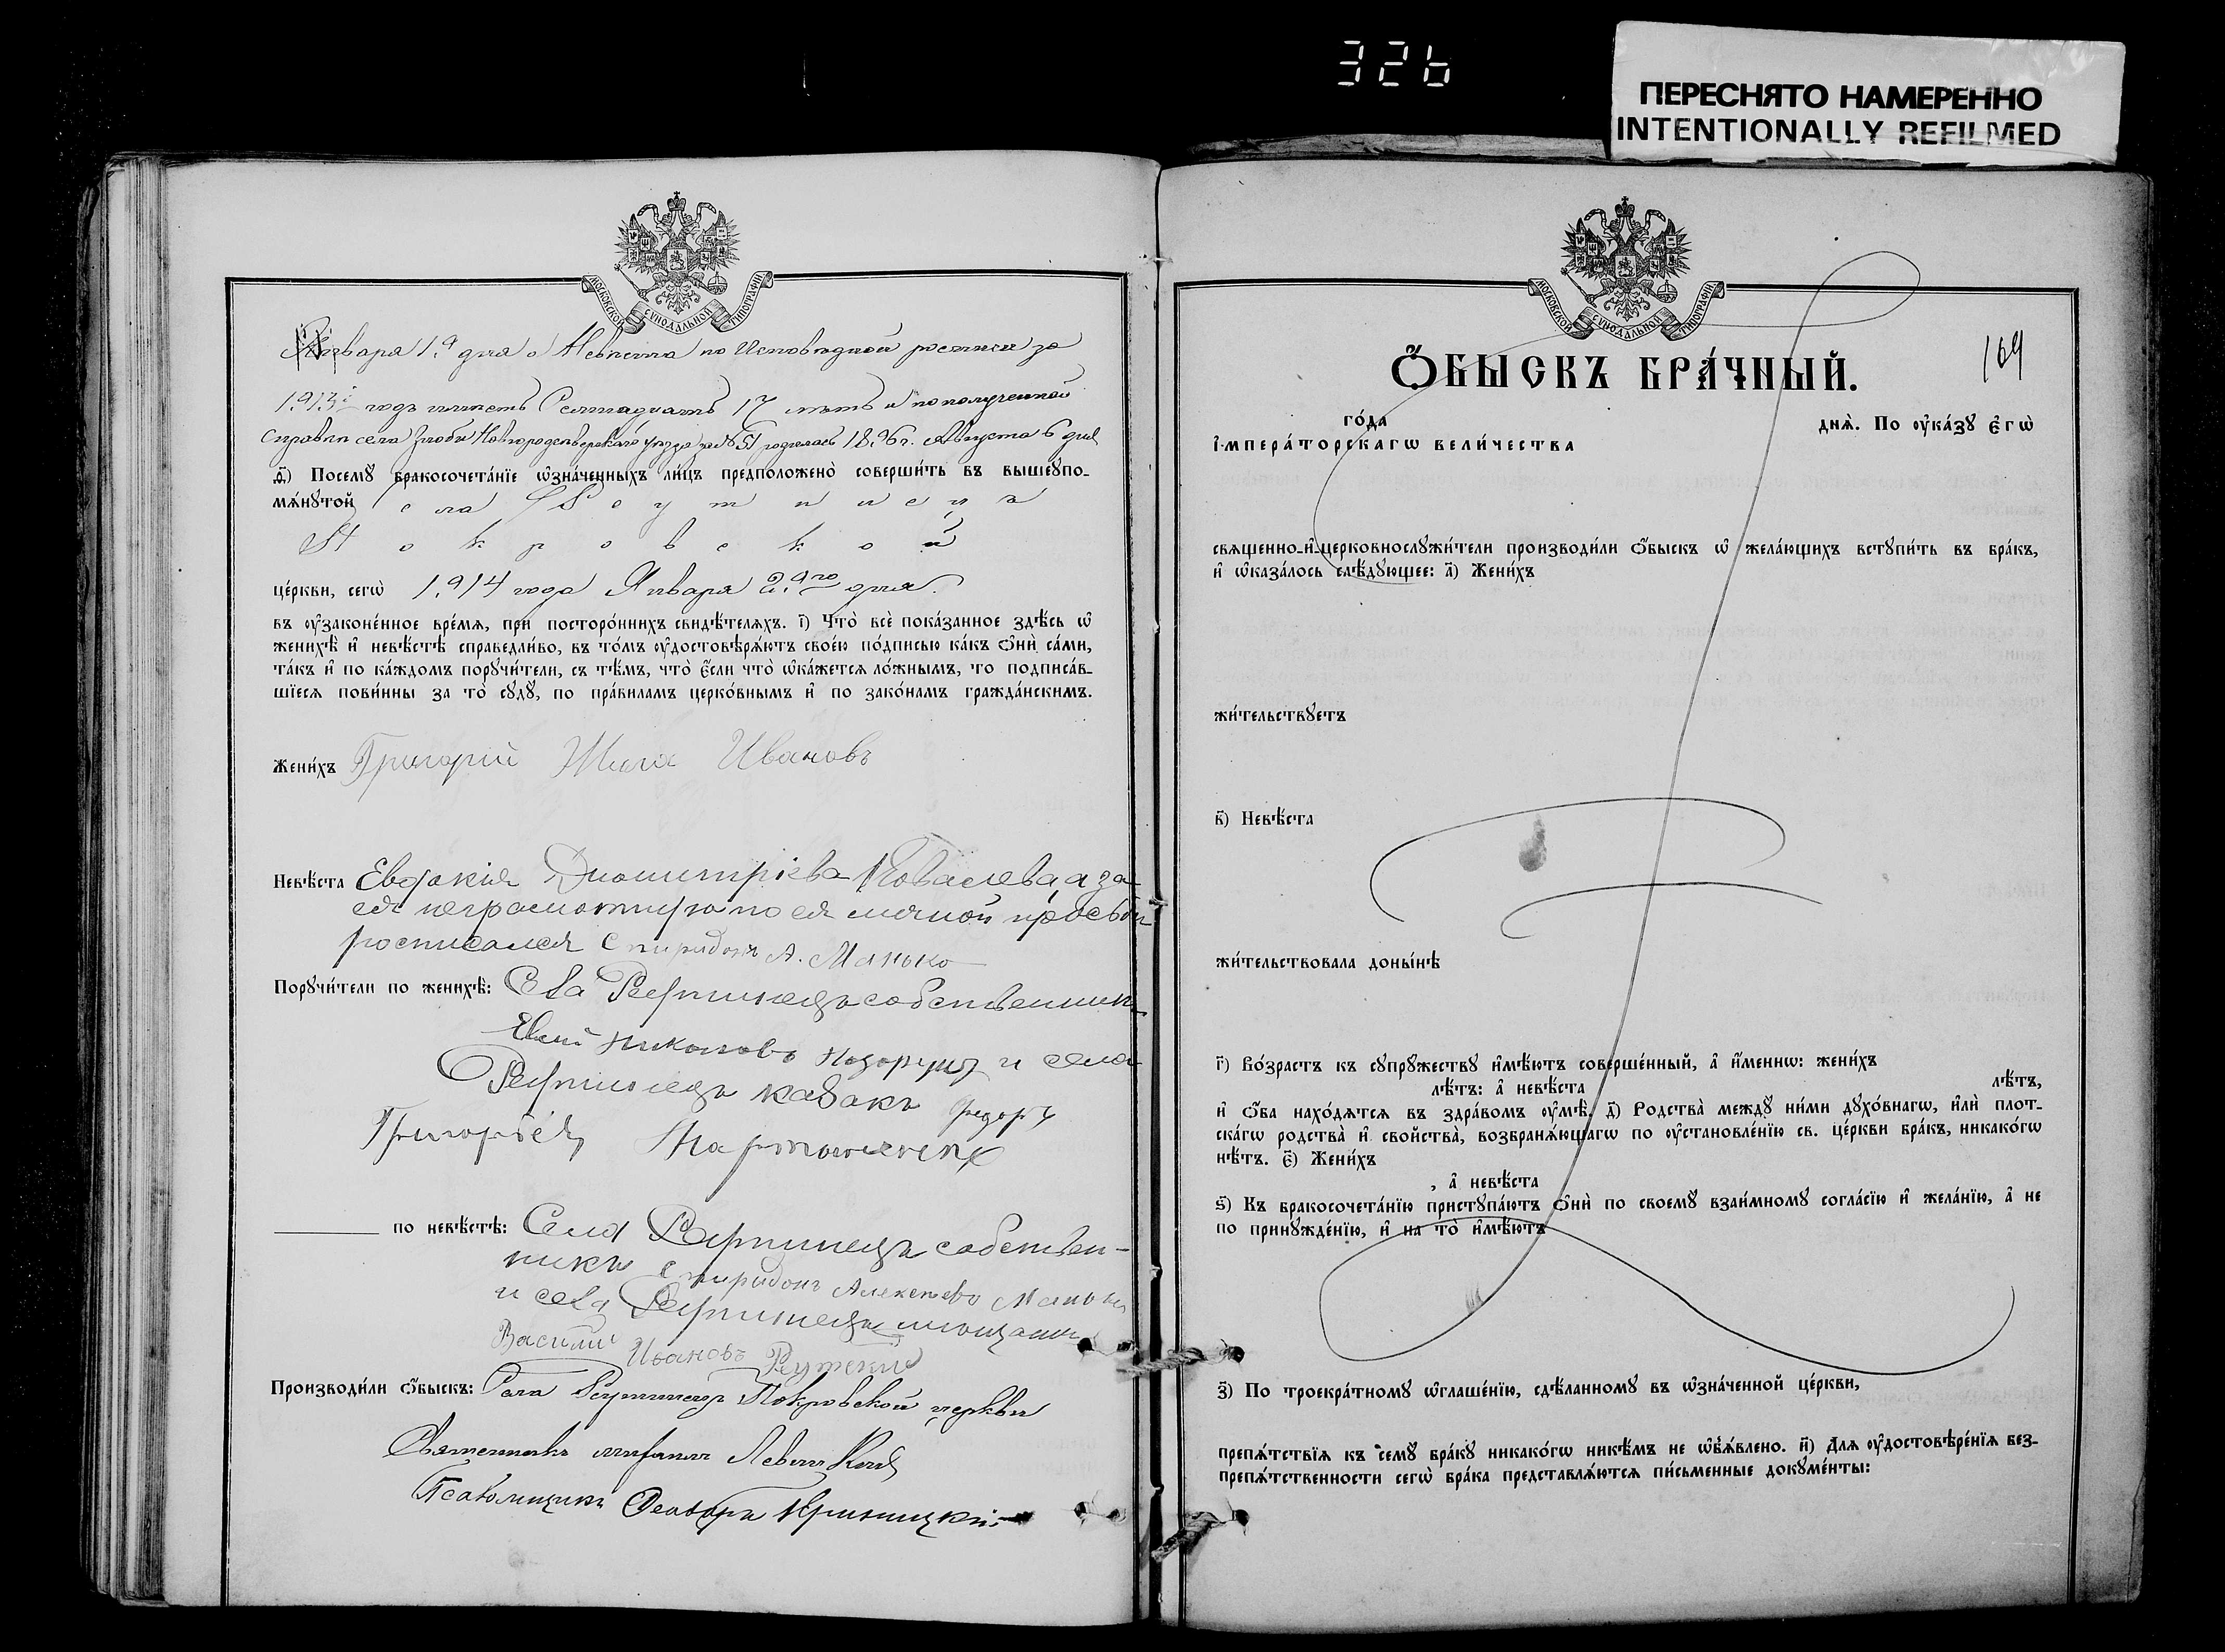 326
ПЕРЕСНЯТО НАМЕРЕННО
INTENTIONALLY REFILMED
МОСКОВСКОЙ СѴНОДАЛЬНОЙ ТИПОГРАФІИ
Января 1.9 дня о Невѣста по Исповѣдной росписи за
1.913й годъ имѣетъ Семнадцать 17 лѣтъ и по полученной
справки села Новгородсѣверскаго уѣзда за № 51 родилась 18.96 г. Августа 6 дня
д҃) Посемꙋ̀ бракосочета́нїе ѡ҆зна́ченныхъ ли́цъ предположено̀ соверши́ть въ вышеꙋпо-
мѧ́нꙋтой села Реутинецъ
Покровской
це́ркви, сегѡ̀ 1.914 года Января 2.9го дня.
въ ᲂу҆зако́ненное вре́мѧ, при посторо́ннихъ свидѣ́телѧхъ. і҃) Что̀ всѐ пока́занное здѣ́сь ѡ҆
женихѣ̀ и҆ невѣ́стѣ справедли́во, въ то́мъ ᲂу҆достовѣрѧ́ютъ свое́ю по́дписью ка́къ ѻ҆нѝ са́ми,
та́къ и҆ по ка́ждомъ порꙋчи́тели, съ тѣ́мъ, что̀ є҆́сли что̀ ѡ҆ка́жетсѧ ло́жнымъ, то подписа́в-
шїесѧ пови́нны за то̀ сꙋдꙋ̀, по пра́виламъ церко́внымъ и҆ по зако́намъ гражда́нскимъ.
Жени́хъ Григорий Жила Ивановъ
Невѣ́ста Евдокия Димитрiева Ковалева, а за
ея неграмотную по ея личной просьбы
росписался Спиридонъ А. Манько
Порꙋчи́тели по женихѣ̀: Села Реутинецъ собственникъ
Николовъ и села
Реутинецъ казакъ Федоръ
Григорьев
по невѣ́стѣ: Села Реутинецъ собствен-
никъ Спиридонъ Алексеевъ Манько
и села Реутинецъ мещанин
Василий Ивановъ Рутский
Производи́ли ѻ҆́быскъ: Села Реутинецъ Покровской церкви
Священникъ
Псаломщикъ Феодоръ Криницкий
ѺБЫСКЪ БРА́ЧНЫЙ.
169
го́да
днѧ̀. По ᲂу҆ка́зꙋ є҆гѡ̀
і҆мпера́торскагѡ вели́чества
свѧще́нно-и҆-церковнослꙋжи́тели производи́ли ѻ҆́быскъ ѡ҆ жела́ющихъ встꙋпи́ть въ бра́къ,
и҆ ѡ҆каза́лось слѣ́дꙋющее: а҃) Жени́хъ
жи́тельствꙋетъ
в҃) Невѣ́ста
жи́тельствовала доны́нѣ
г҃) Во́зрастъ къ сꙋпрꙋ́жествꙋ и҆мѣ́ютъ соверше́нный, а҆ и҆́меннѡ: жени́хъ
лѣ́тъ: а҆ невѣ́ста
лѣ́тъ,
и҆ ѻ҆́ба нахо́дѧтсѧ въ здра́вомъ ᲂу҆мѣ̀. д҃) Родства̀ междꙋ̀ ни́ми дꙋхо́внагѡ, и҆лѝ плот-
ска́гѡ родства̀ и҆ сво́йства̀, возбранѧ́ющагѡ по ᲂу҆становле́нїю св. це́ркви бра́къ, никако́гѡ
нѣ́тъ. є҃) Жени́хъ
, а҆ невѣ́ста
ѕ҃) Къ бракосочета́нїю пристꙋпа́ютъ ѻ҆нѝ по своемꙋ̀ взаи́мномꙋ согла́сїю и҆ жела́нїю, а҆ не
по принꙋжде́нїю, и҆ на то̀ и҆мѣ́ютъ
з҃) По троекра́тномꙋ ѡ҆глаше́нїю, сдѣ́ланномꙋ въ ѡ҆зна́ченной це́ркви,
препѧ́тствїѧ къ семꙋ̀ бра́кꙋ никако́гѡ никѣ́мъ не ѡ҆б̾ѧ́влено. и҃) Длѧ ᲂу҆достовѣре́нїѧ без-
препѧ́тственности сегѡ̀ бра́ка представлѧ́ютсѧ пи́сьменные докꙋме́нты: